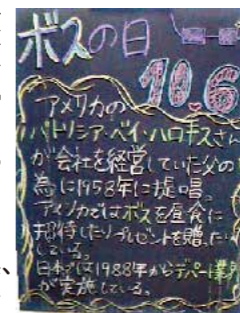 ボスの日
10.6
アメリカの
パトリシア・ベイ・ハロキスさん
が会社を経営していた父の
為に1958年に提唱
アメリカではボスを昼食に
招待したりプレゼントを贈ったり
している。
日本では1988年からデパート業界
が実施している。